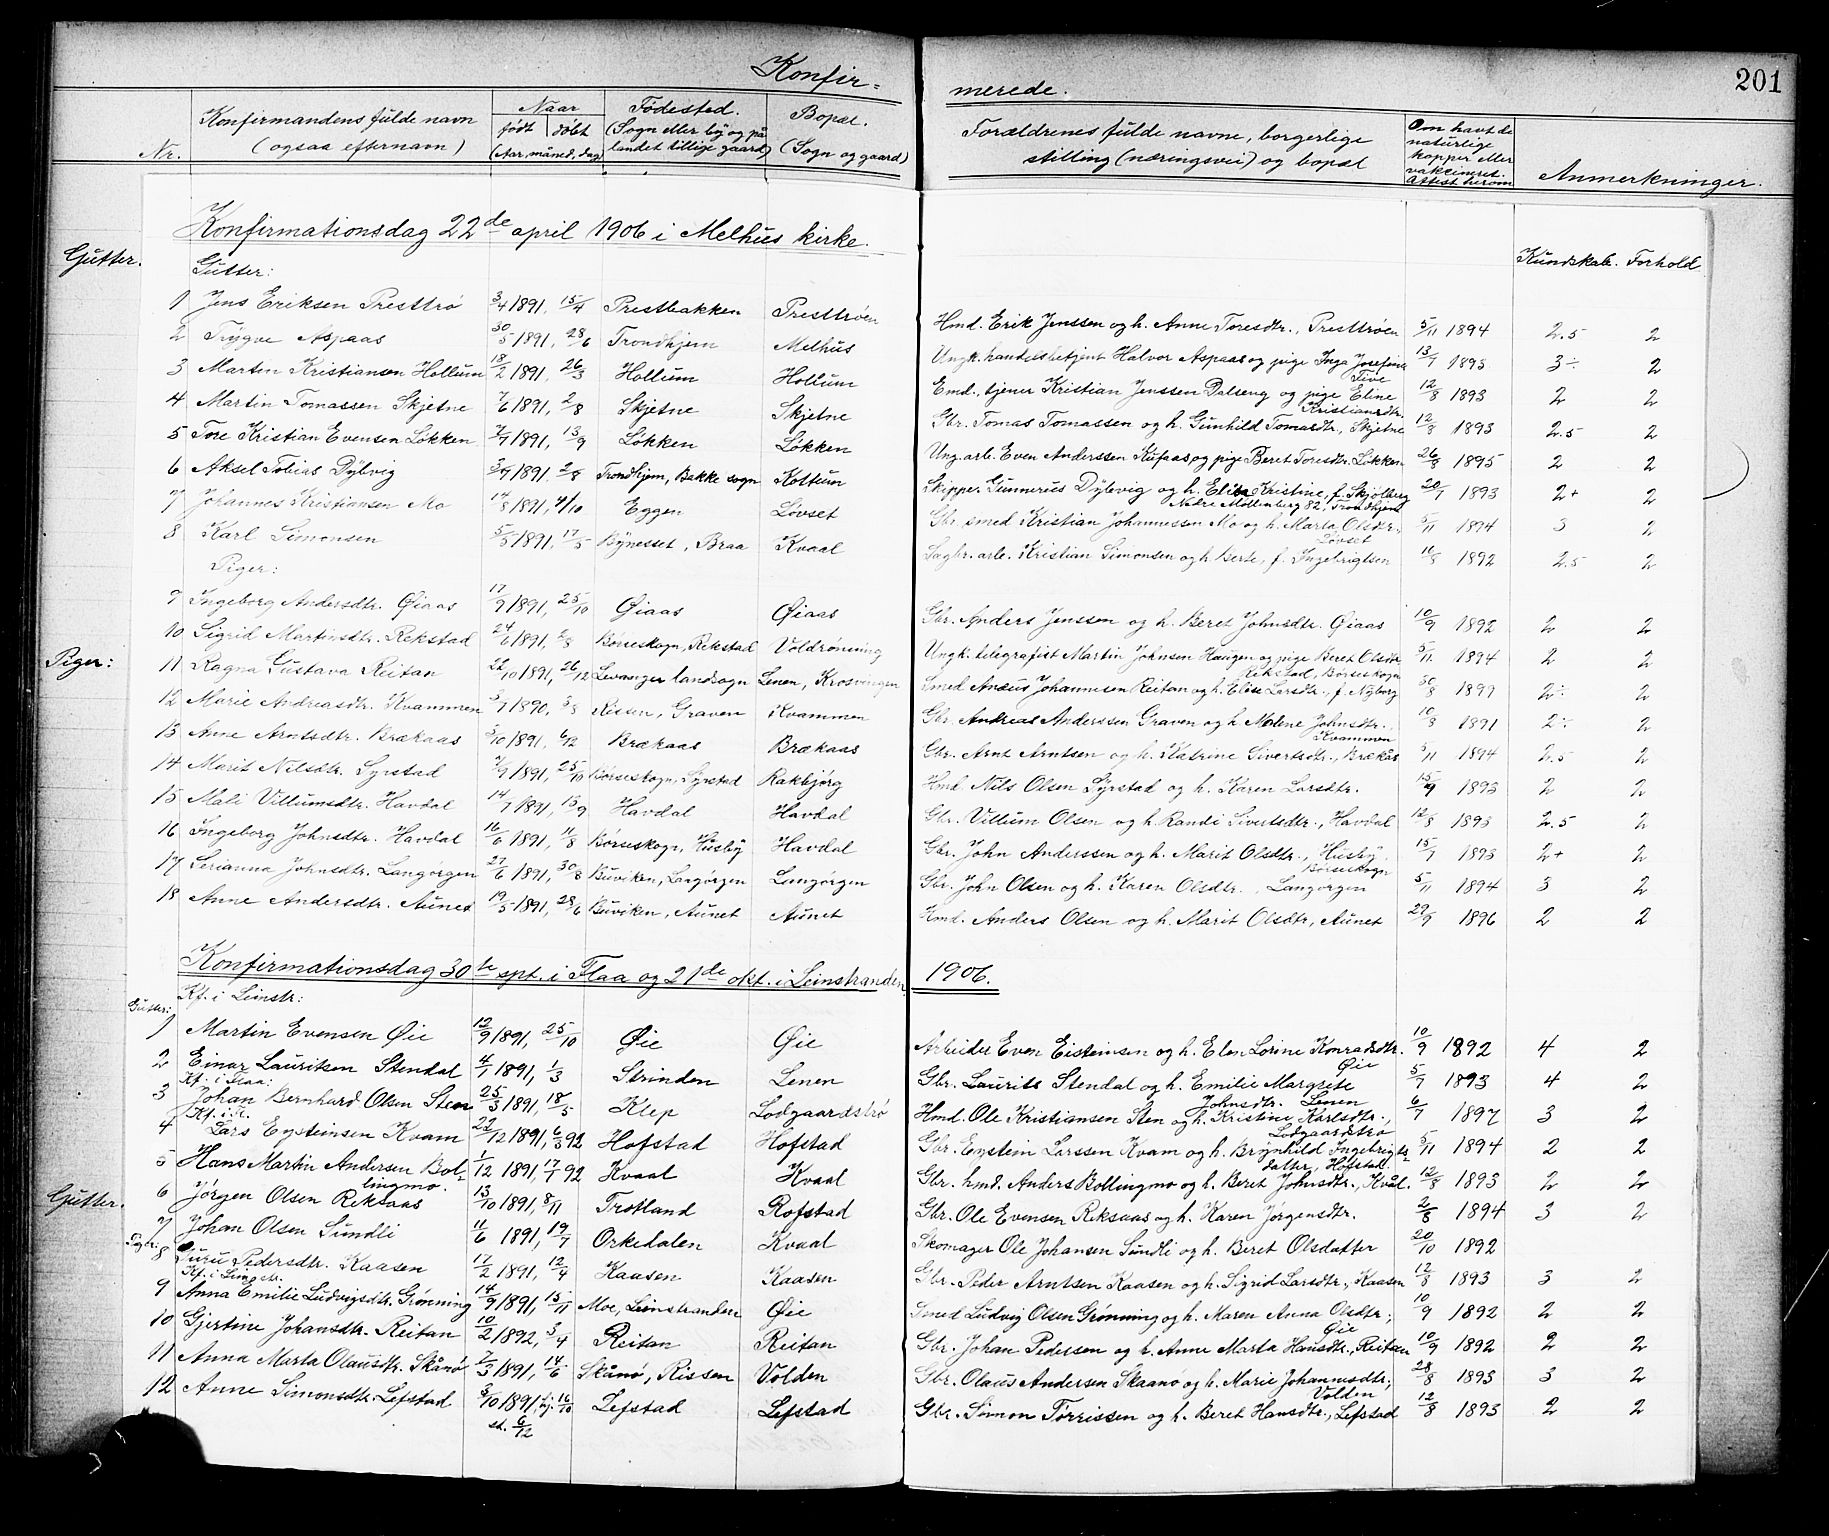 Konfir= merede. 201
Nr. Konfirmandens fulde navn (ogsaa efternavn) Naar født | døbt (Aar, måned, dag) Fødested. (Sogn eller by og på landet tillige gaard) Bopæl. (Sogn og gaard) Forældrenes fulde navne, borgerlige stilling (næringsvei) og bopæl Om havt de naturlige kopper eller vakcineret. Attest herom Anmerkninger.
Konfirmationsdag 22de april 1906 i Melhus kirke.
Gutter. Gutter: Kundskab. Forhold
1 Jens Eriksen Presttrø 3/4 1891, 15/4 Prestbakken Presttrøen Hmd. Erik Jenssen og h. Anne Toresdtr., Presttrøen 5/11 1894 2.5 2
2 Trygve Aspaas 30/5 1891, 28/6 Trondhjem Melhus Ungk. handelsbetjent Halvor Aspaas og pige Inga Josefine Tive 13/7 1893 3÷ 2
3 Martin Kristiansen Hollum 18/2 1891, 26/3 Hollum Hollum Emd., tjener Kristian Jenssen Dalseng og pige Eline Kristiansdtr. 12/8 1893 2 2
4 Martin Tomassen Skjetne 7/6 1891, 2/8 Skjetne Skjetne Gbr. Tomas Tomassen og h. Gunhild Tomasdtr., Skjetne 12/8 1893 2.5 2
5 Tore Kristian Evensen Løkken 7/7 1891, 13/9 Løkken Løkken Ung. arb. Even Anderssen Kufaas og pige Beret Toresdtr. Løkken 26/8 1895 2 2
6 Aksel Tobias Dybvig 3/7 1891, 2/8 Trondhjem, Bakke sogn Kollum Skipper Gunnerus Dybvig og h. Elise Kristine, f. Skjølberg Nedre Møllenberg 82, Trondhjem 20/7 1893 2+ 2
7 Johannes Kristiansen Mo 14/8 1891, 4/10 Eggen Løvset Gbr. smed Kristian Johannessen Mo og h. Marta Olsdtr., Løvset 5/11 1894 3 2
8 Karl Simonsen 5/5 1891, 17/5 Bynesset, Braa Kvaal Sagbr. arb. Kristian Simonsen og h. Berte, f. Ingebrigtsen 16/8 1892 2.5 2
Piger:
9 Ingeborg Andersdtr. Øiaas 17/9 1891, 25/10 Øiaas Øiaas Gbr. Anders Jenssen og h. Beret Johnsdtr. Øiaas 10/9 1892 2 2
10 Sigrid Martinsdtr. Rekstad 24/6 1891, 2/8 Børseskogn, Rekstad Voldrønning Ungk. telegrafist Martin Johnsen Haugen og pige Beret Olsdtr. Rekstad, Børseskogn 5/11 1894 2 2
Piger: 11 Ragna Gustava Reitan 22/10 1891, 26/12 Levanger landsogn Lenen, Krosvingen Smed Anæus Johannesen Reitan og h. Elise Larsdtr., f. Nyborg 30/8 1897 2÷ 2
12 Marie Andreasdtr. Kvammen 5/7 1890, 3/8 Rissen, Graven Kvammen Gbr. Andreas Anderssen Graven og h. Malene Johnsdtr. Kvammen 10/8 1891 2÷ 2
13 Anne Arntsdtr. Brækaas 3/10 1891, 6/12 Brækaas Brækaas Gbr. Arnt Arntsen og h. Katrine Sivertsdtr., Brækås 5/11 1894 2.5 2
14 Marit Nilsdtr. Syrstad 7/9 1891, 25/10 Børseskogn, Syrstad Rakbjørg Hmd. Nils Olsen Syrstad og h. Karen Larsdtr. 15/9 1893 2 2
15 Mali Villumsdtr. Havdal 14/7 1891, 13/9 Havdal Havdal Gbr. Villum Olsen og h. Randi Sivertsdtr., Havdal 12/8 1893 2.5 2
16 Ingeborg Johnsdtr. Havdal 16/6 1891, 11/8 Børseskogn, Husby Havdal Gbr. John Anderssen og h. Marit Olsdtr., Husby, Børseskogn 15/7 1893 2+ 2
17 Serianna Johnsdtr. Langørgen 27/6 1891, 30/8 Buviken, Langørgen Langørgen Gbr. John Olsen og h. Karen Olsdtr., Langørgen 5/11 1894 3 2
18 Anne Andersdtr. Aunet 19/5 1891, 28/6 Buviken, Aunet Aunet Hmd. Anders Olsen og h. Marit Olsdtr, Aunet 29/9 1896 2 2
Konfirmationsdag 30te spt. i Flaa og 21de okt. i Leinstranden 1906.
Gutter: Kf. i Leinstr:
1 Martin Evensen Øie 12/9 1891, 25/10 Øie Øie Arbeider Even Eisteinsen og h. Elen Lorine Konradsdtr. Øie 10/9 1892 4 2
2 Einar Lauritsen Stendal 4/1 1891, 1/3 Strinden Lenen Gbr. Laurits Stendal og h. Emilie Margrete Johnsdtr. Lenen 5/7 1893 4 2
Kf. i Flaa:
3 Johan Bernhard Olsen Sten 25/3 1891, 18/5 Klep Lodgaardstrø Hmd. Ole Kristiansen Sten og h. Kristine Karlsdtr., Lodgaardstrø 6/7 1897 3 2
4 Lars Eysteinsen Kvam 23/12 1891, 6/3 92 Hofstad Hofstad Gbr. Eystein Larssen Kvam og h. Brynhild Ingebrigtsdatter, Hofstad. 5/11 1894 2 2
5 Hans Martin Andersen Bollingmo. 1/12 1891, 17/1 92 Kvaal Kvaal Gbr. hmd. Anders Bollingmo og h. Beret Johnsdtr., Kvål. 12/8 1893 2 2
Gutter. 6 Jørgen Olsen Reksaas 13/10 1891, 8/11 Trotland Rofstad Gbr. Ole Evensen Reksaas og h. Karen Jørgensdtr. 2/8 1894 3 2
7 Johan Olsen Sundli 11/6 1891, 19/7 Orkedalen Kvaal Skomager Ole Johansen Sundli og h. Beret Olsdatter 20/10 1892
Piger: 8 Guru Pedersdtr. Kaasen 17/2 1891, 12/4 Kaasen Kaasen Gbr. Peder Arntsen Kaasen og h. Sigrid Larsdtr., Kaasen 12/8 1893 3 2
Kf. i Leinstr.
9 Anna Emilie Ludvigsdtr. Grønning 14/9 1891, 15/11 Moe, Leinstranden Øie Smed Ludvig Olsen Grønning og h. Maren Anna Olsdtr., Øie 10/9 1892 2 2
10 Gjertine Johansdtr. Reitan 10/2 1892, 3/4 Reitan Reitan Gbr. Johan Pedersen og h. Anne Marta Hansdtr., Reitan 10/9 1892 2 2
11 Anna Marta Olausdtr. Skånø 7/3 1891, 14/6 Skånø, Rissen Volden Gbr. Olaus Andersen Skaanø og h. Marie Johannesdtr., Volden 28/8 1893 3 2
12 Anne Simonsdtr. Lefstad 3/10 1891, hj. 16/10 st. 6/12 Lefstad Lefstad Gbr. Simon Tørrissen og h. Beret Hansdtr., Lefstad 12/8 1893 2 2